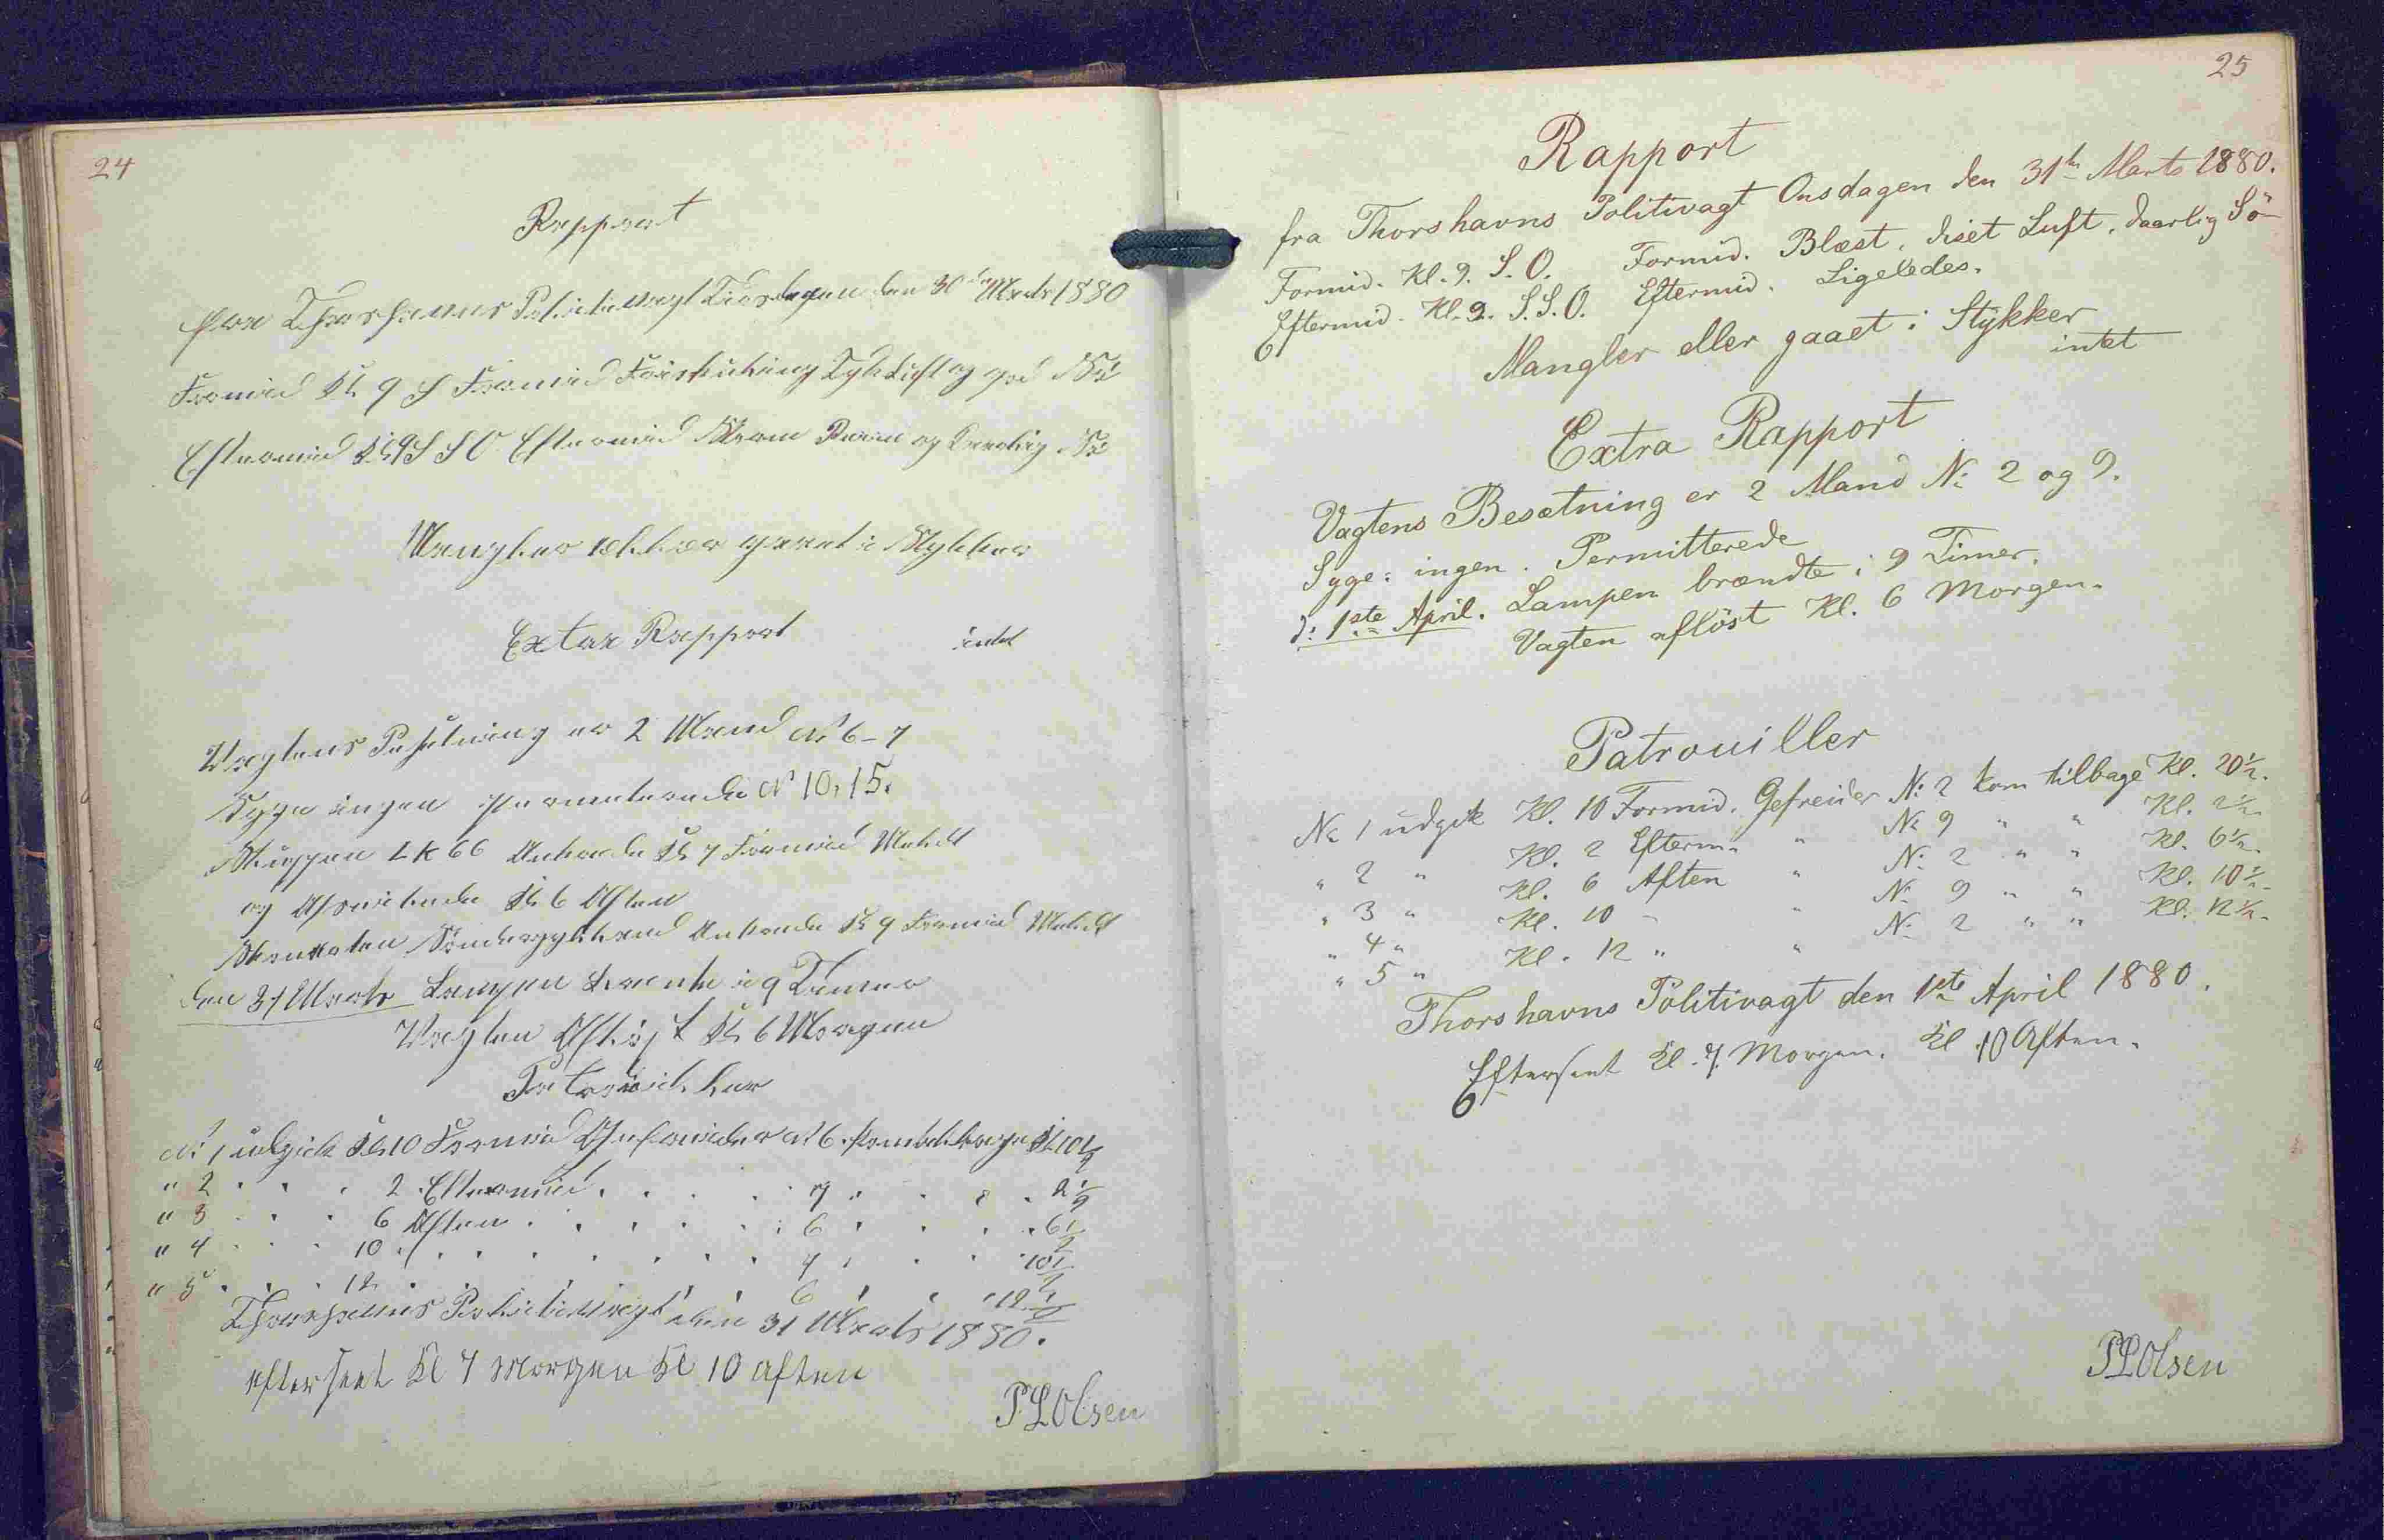 24
Rapport
fra Thorshavns Politivagt Tirsdagen den 30te Marts 1880
Formid Kl 9 S Formid Tyk Luft og god Sö
Eftermid Kl 9 S S O Eftermid Storm og Daarlig Sö
Mangler eller gaaet i Stykker
Extra Rapport intet
Vagtens Besetning er 2 Mand No 6-7
Syge ingen Permiterede No 10, 15.
Sluppen L K 66 Ankrede Kl 7 Formid
og Afseilede Kl 6 Aften
Ankrede Kl 9 Formid
den 31 Marts Lampen brente i 9 Timer
Vagten Aflöst Kl 6 Morgen
Patrouiller
No 1 udgick Kl 10 Formid Gefreider No 6 kom tilbage Kl 10½
" 2 " " " 2 Eftermid " " " " 7 " " " " 2½
" 3 " " " 6 Aften " " " " " 6 " " " " 6½
" 4 " " " 10 " " " " " " 7 " " " " 10½
" 5 " " " 12 " " " " " " 6 " " " 12½
Thorshavns Politivagt den 31 Marts 1880.
efterseet Kl 7 Morgen Kl 10 Aften
PLOlsen
25
Rapport
fra Thorshavns Politivagt Onsdagen den 31te Marts 1880.
Formid. Kl. 9. S. O. Formid. Blæst, diset Luft, daarlig Sö
Eftermid. Kl. 9. S. S. O. Eftermid. Ligeledes.
Mangler eller gaaet i Stykker
intet
Extra Rapport
Vagtens Besætning er 2 Mand No 2 og 9.
Syge: ingen. Permitterede
d: 1ste April. Lampen brændte i 9 Timer.
Vagten aflöst Kl. 6 Morgen.
Patrouiller
No 1 udgik Kl. 10 Formid. Gefreider No 2 kom tilbage Kl. 20½.
" 2 " Kl. 2 Efterm. " No 9 " " Kl. 2½.
" 3 " Kl. 6 Aften " No 2 " " Kl. 6½.
" 4 " Kl. 10 " " No 9 " " Kl. 10½.
" 5 " Kl. 12 " " No 2 " " Kl. 12½.
Thorshavns Politivagt den 1ste April 1880.
Efterseet Kl. 7. Morgen. Kl 10 Aften.
PLOlsen